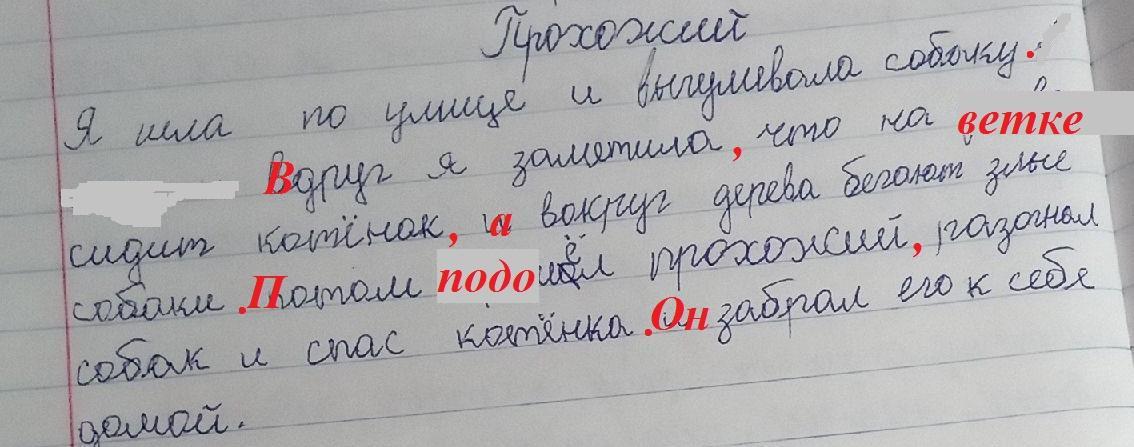 Прохожий
Я шла по улице и выгумевала собачку.
Вдруг я заметила, что на ветке
сидит котёнок, а вокруг дерева бегают злые
собаки. Потом подошёл прохожий, разогнал
собак и спас котёнка. Он забрал его к себе
домой.